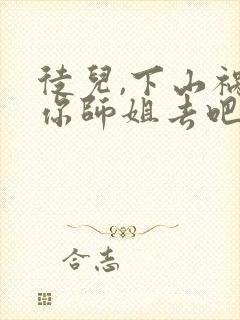 徒兒,下山禍
你師姐去吧
合志